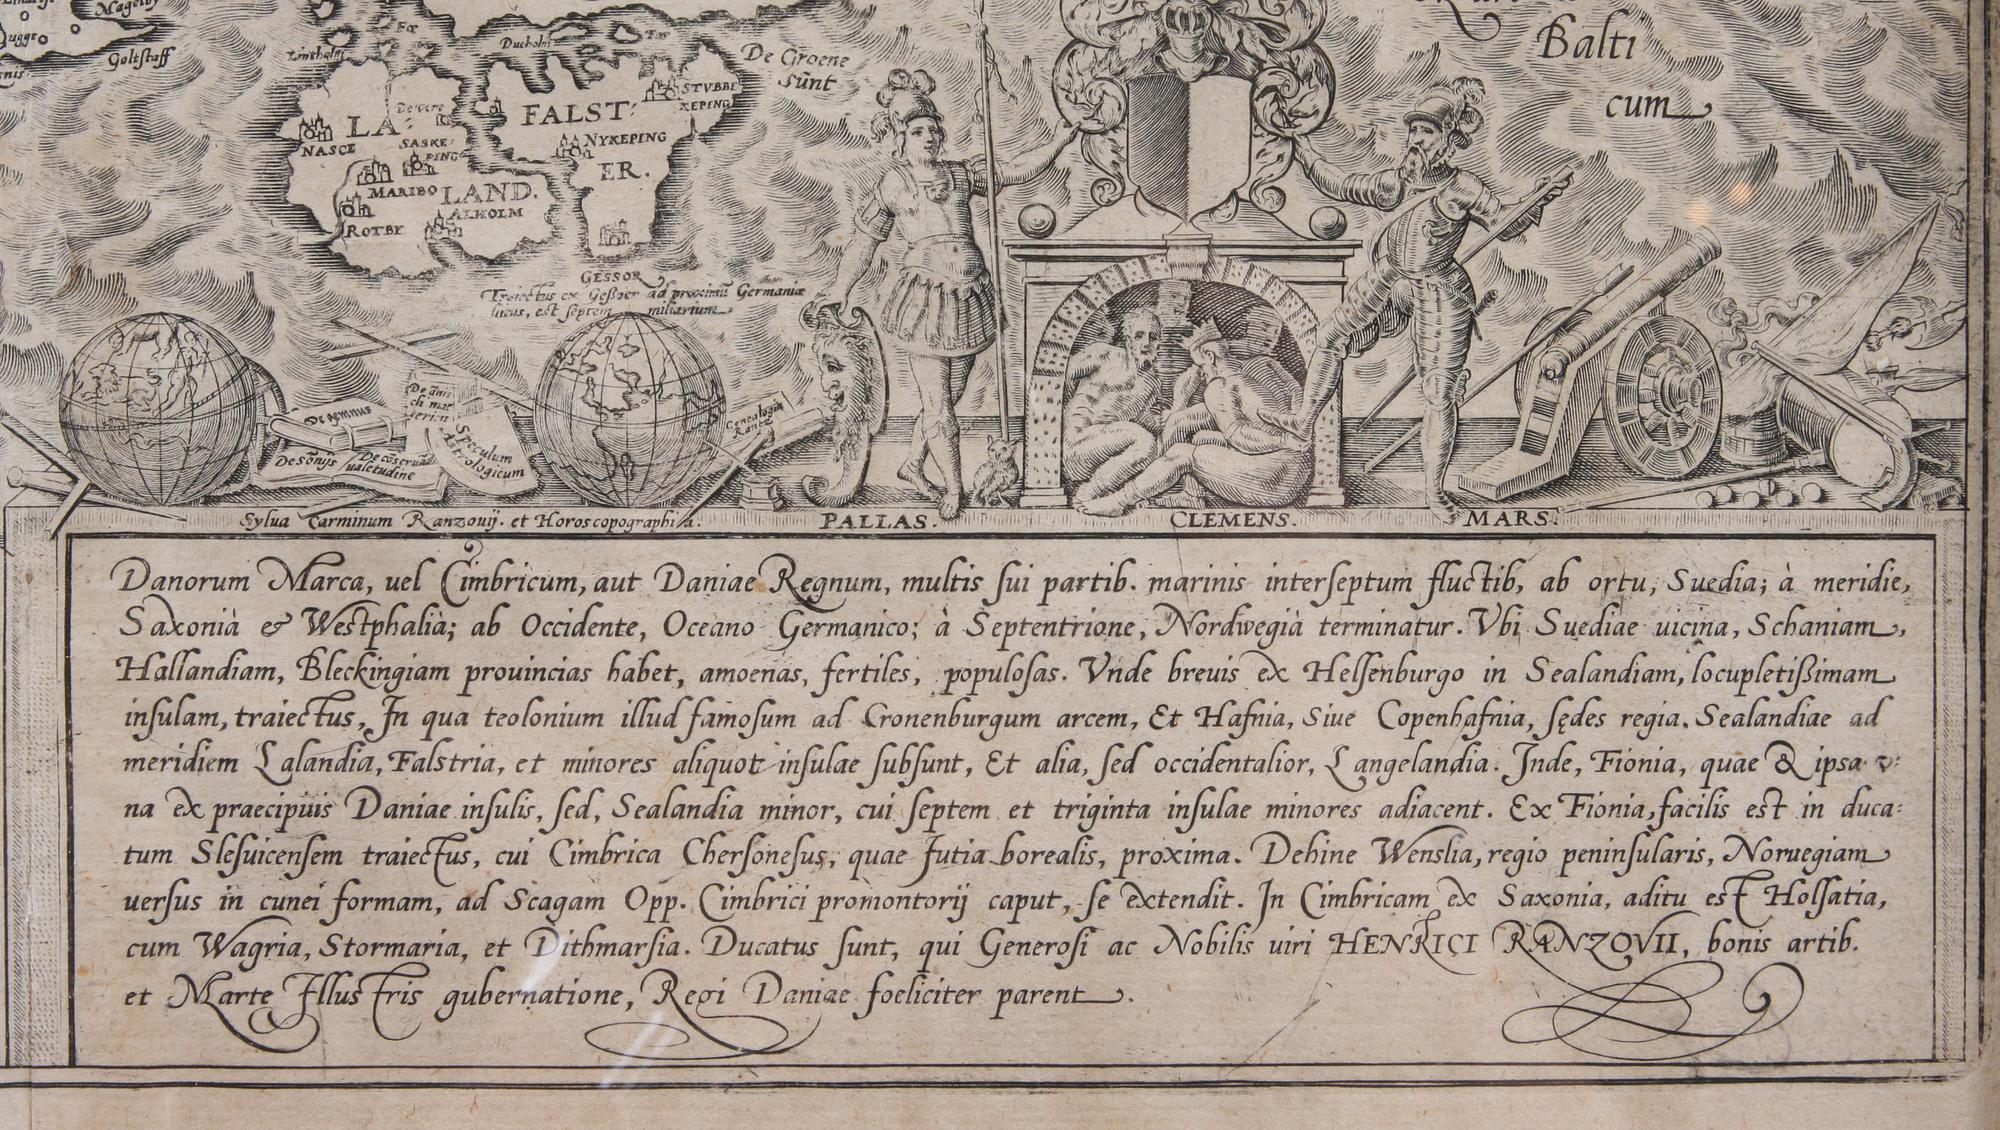 Balti
cum
Goltstaff
De Groene
Sunt
LA
LAND.
NASCE
SASKE
PING
MARIBO
ALHOLM
ROTBY
FALST
ER.
STVBBE
KEPING
NYKEPING
GESSOR
Traiectus ex Geßoer ad proximū Germaniæ
locus, est septem miliarium.
De somnijs
De cōservād
ualetudine
Speculum
Astrologicum
Genealogia
Rantz
Sylua Carminum Ranzouij. et Horoscopographia.
PALLAS.
CLEMENS.
MARS.
Danorum Marca, uel Cimbricum, aut Daniae Regnum, multis sui partib. marinis interseptum fluctib, ab ortu, Suedia; à meridie,
Saxoniâ & Westphaliâ; ab Occidente, Oceano Germanico; à Septentrione, Nordwegiâ terminatur. Vbi Suediae uicina, Schaniam,
Hallandiam, Bleckingiam prouincias habet, amoenas, fertiles, populosas. Vnde breuis ex Helsenburgo in Sealandiam, locupletißimam
insulam, traiectus, In qua teolonium illud famosum ad Cronenburgum arcem, Et Hafnia, Siue Copenhafnia, sędes regia. Sealandiae ad
meridiem Lalandia, Falstria, et minores aliquot insulae subsunt, Et alia, sed occidentalior, Langelandia. Inde, Fionia, quae & ipsa v:
na ex praecipuis Daniae insulis, sed, Sealandia minor, cui septem et triginta insulae minores adiacent. Ex Fionia, facilis est in duca:
tum Slesuicensem traiectus, cui Cimbrica Chersonesus, quae Jutia borealis, proxima. Dehinc Wenslia, regio peninsularis, Noruegiam
uersus in cunei formam, ad Scagam Opp. Cimbrici promontorij caput, se extendit. In Cimbricam ex Saxonia, aditu est Holsatia,
cum Wagria, Stormaria, et Dithmarsia. Ducatus sunt, qui Generosi ac Nobilis uiri HENRICI RANZOVII, bonis artib.
et Marte Illustris gubernatione, Regi Daniae foeliciter parent.